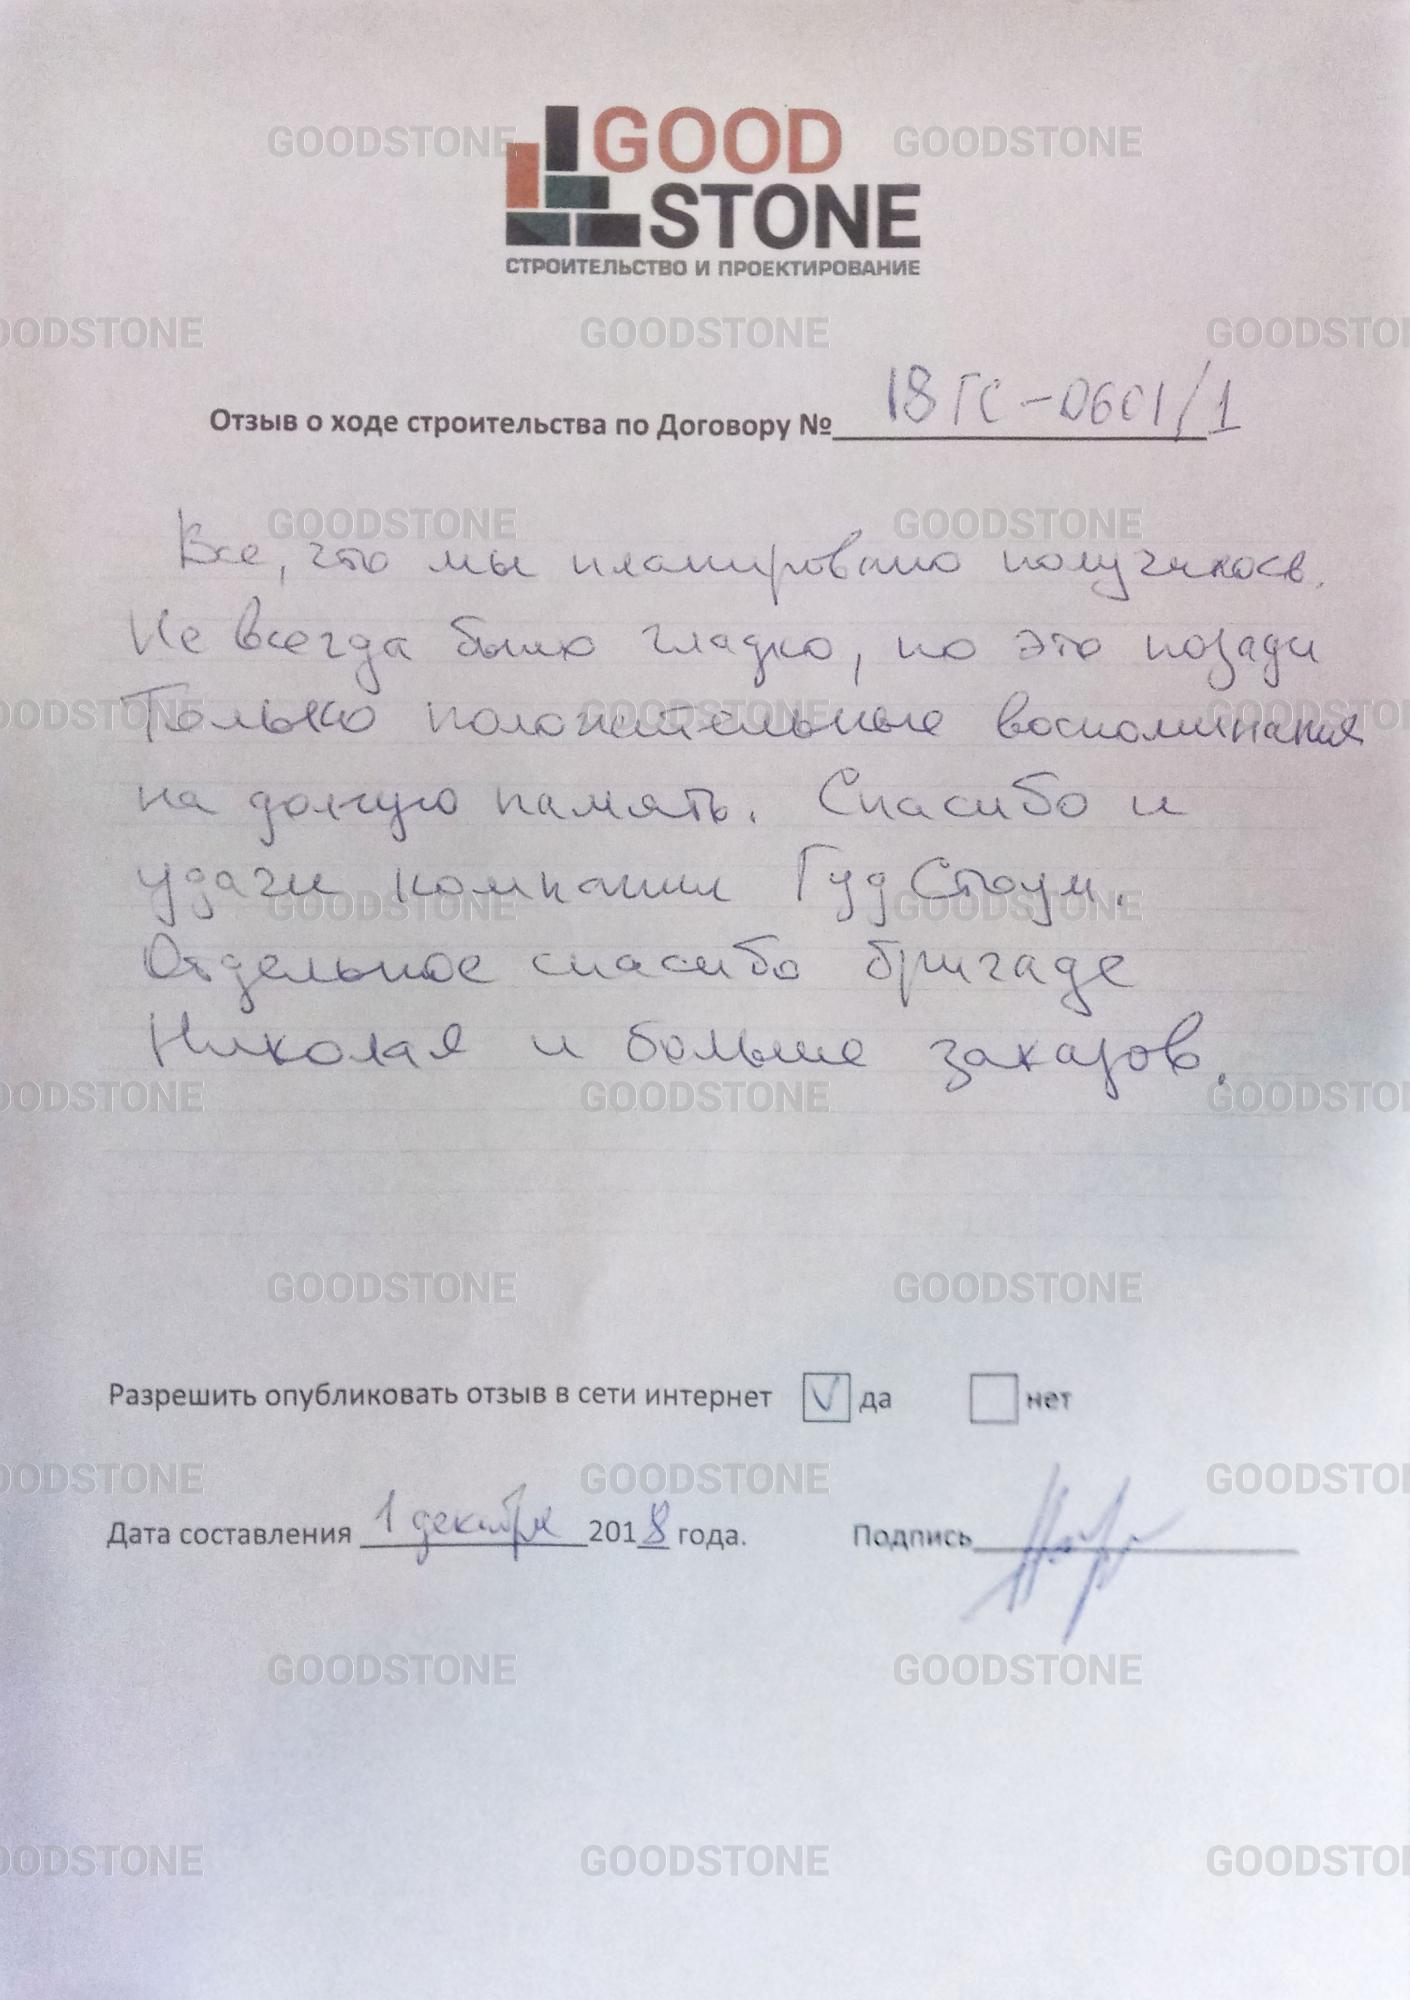 GOOD
STONE
СТРОИТЕЛЬСТВО И ПРОЕКТИРОВАНИЕ
Отзыв о ходе строительства по Договору № 18ГС-0601/1
Все, что мы планировано получилось.
Не всегда было гладко, но это позади
Только положительные воспоминания
на долгую память. Спасибо и
удачи компании Гуд Стоун.
Отдельное спасибо бригаде
Николая и больше заказов.
Разрешить опубликовать отзыв в сети интернет V да нет
Дата составления 1 декабря 2018 года. Подпись
GOODSTONE